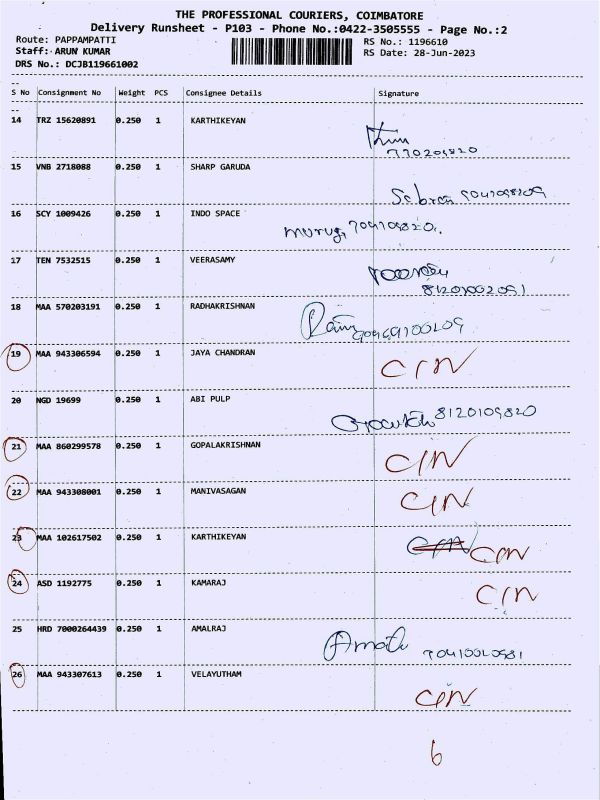 THE PROFESSIONAL COURIERS, COIMBATORE
Delivery Runsheet - P103 - Phone No.:0422-3505555 - Page No.:2
Route: PAPPAMPATTI RS No.: 1196610
Staff: ARUN KUMAR RS Date: 28-Jun-2023
DRS No.: DCJB119661002
S No Consignment No Weight PCS Consignee Details Signature
14 TRZ 15620891 0.250 1 KARTHIKEYAN
15 VNB 2718088 0.250 1 SHARP GARUDA
16 SCY 1009426 0.250 1 INDO SPACE
17 TEN 7532515 0.250 1 VEERASAMY
81201002091
18 MAA 570203191 0.250 1 RADHAKRISHNAN
19 MAA 943306594 0.250 1 JAYA CHANDRAN CIN
20 NGD 19699 0.250 1 ABI PULP 8120109820
21 MAA 860299578 0.250 1 GOPALAKRISHNAN CIN
22 MAA 943308001 0.250 1 MANIVASAGAN CIN
23 MAA 102617502 0.250 1 KARTHIKEYAN CIN
24 ASD 1192775 0.250 1 KAMARAJ CIN
25 HRD 7000264439 0.250 1 AMALRAJ
26 MAA 943307613 0.250 1 VELAYUTHAM CIN
6